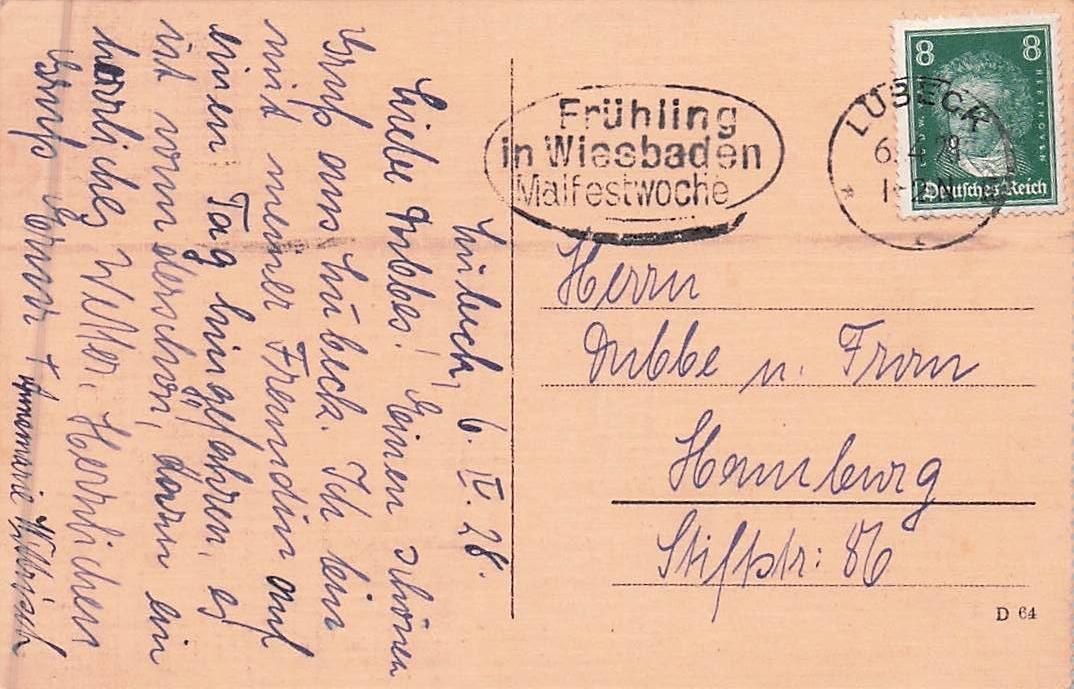 Lübeck, 6. IV. 28.
Liebe Dubbes! Einen schönen
Gruß aus Lübeck. Ich bin
mit meiner Freundin auf
einen Tag hingefahren, es
ist wunderschön, dazu ein
herrliches Wetter. Herzlichen
Gruß Eurer
Annemarie
Frühling
in Wiesbaden
Maifestwoche
LÜBECK
6.4.28
1-2 N
8 8
BEETHOVEN
Deutsches Reich
Herrn
Dubbe u. Frau
Hamburg
Stiftstr: 86
D 64